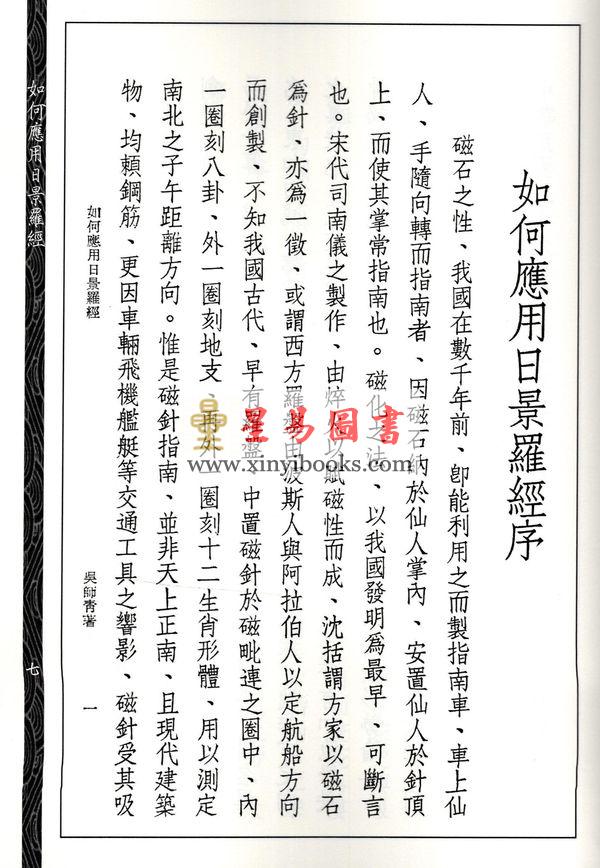 如何應用日景羅經序
磁石之性、我國在數千年前、卽能利用之而製指南車、車上仙
人、手隨向轉而指南者、因磁石納於仙人掌內、安置仙人於針頂
上、而使其掌常指南也。磁化之法、以我國發明爲最早、可斷言
也。宋代司南儀之製作、由焠火以賦磁性而成、沈括謂方家以磁石
爲針、亦爲一徵、或謂西方羅盤由波斯人與阿拉伯人以定航船方向
而創製、不知我國古代、早有羅盤、中置磁針於磁毗連之圈中、內
一圈刻八卦、外一圈刻地支、再外一圈刻十二生肖形體、用以測定
南北之子午距離方向。惟是磁針指南、並非天上正南、且現代建築
物、均賴鋼筋、更因車輛飛機艦艇等交通工具之響影、磁針受其吸
如何應用日景羅經
吳師青著
一
如何應用日景羅經
七
星易圖書
www.xinyibooks.com